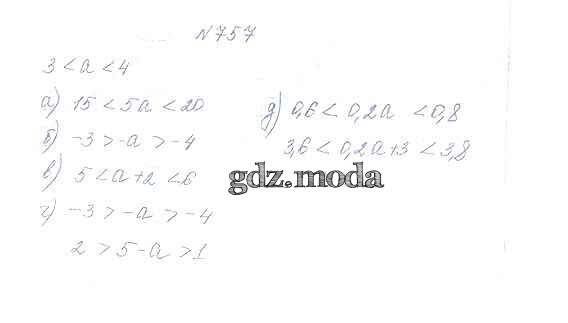 N757
3 < a < 4
а) 15 < 5a < 20
б) -3 > -a > -4
в) 5 < a + 2 < 6
г) -3 > -a > -4
2 > 5 - a > 1
д) 0,6 < 0,2a < 0,8
3,6 < 0,2a + 3 < 3,8
gdz.moda